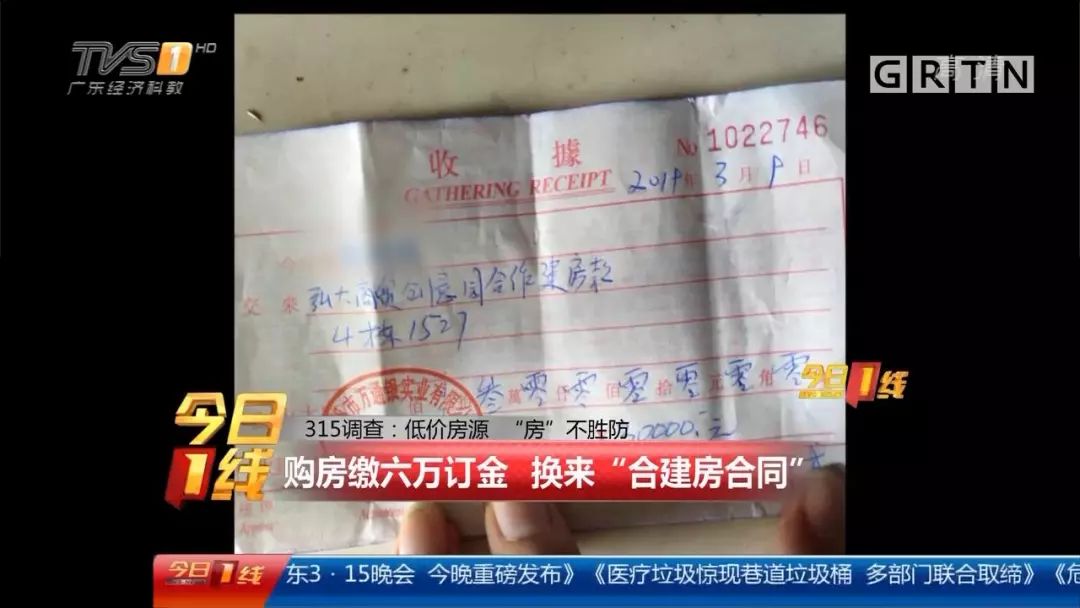 TVS1 HD
广东经济科教
GRTN
收 據
GATHERING RECEIPT
No 1022746
2019年 3月 9日
交 来
合作建房款
4栋1527
叁萬零仟零佰零拾零元零角零
今日1线
315调查：低价房源 “房”不胜防
今日1线
购房缴六万订金 换来“合建房合同”
今日1线
东3·15晚会 今晚重磅发布》《医疗垃圾惊现巷道垃圾桶 多部门联合取缔》《危